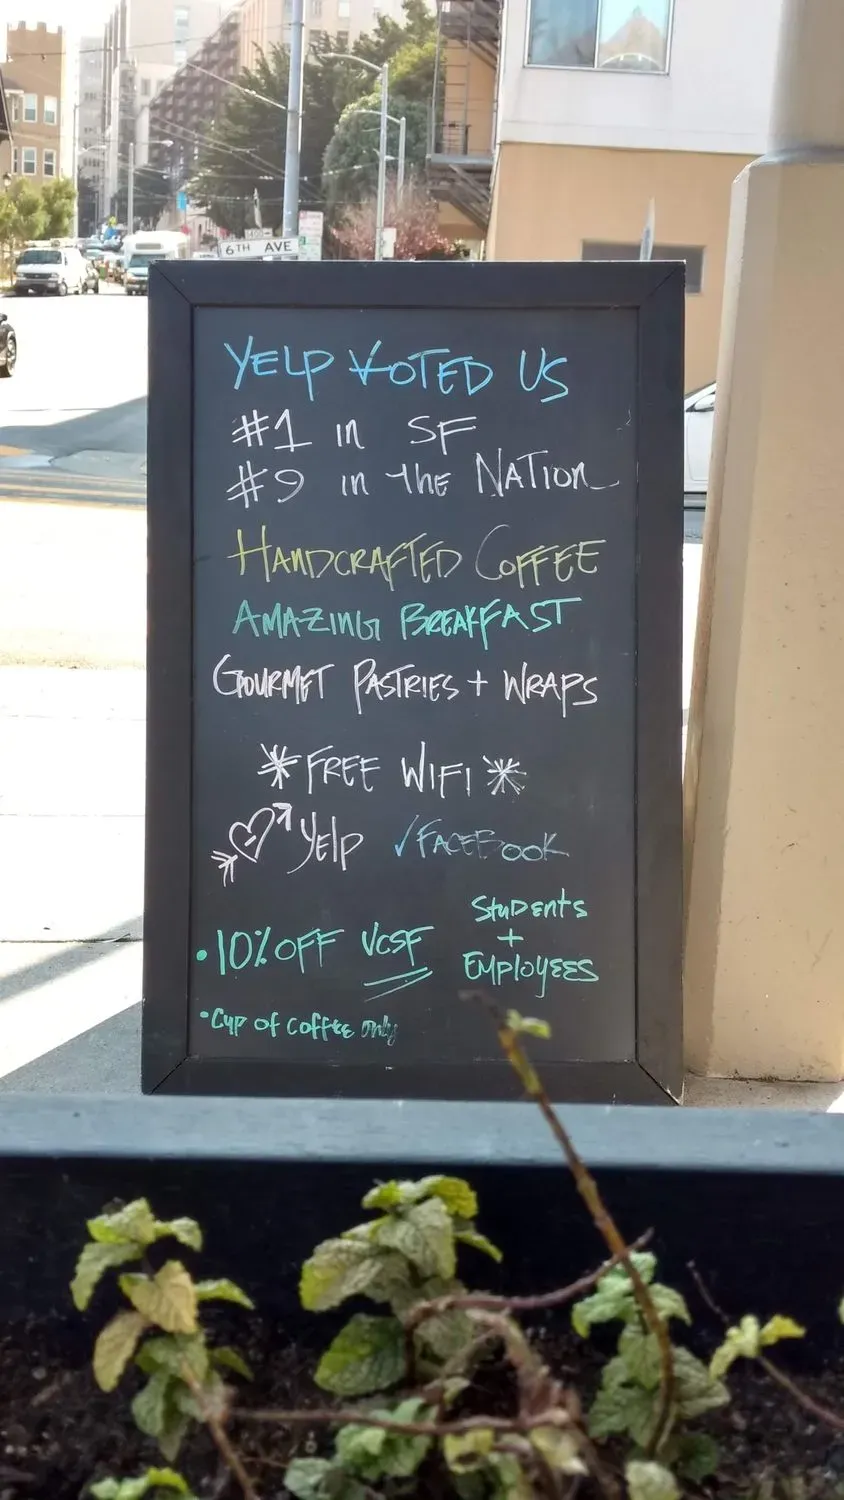 6TH AVE
YELP VOTED US
#1 in SF
#9 in the NATION
HANDCRAFTED COFFEE
AMAZING BREAKFAST
GOURMET PASTRIES + WRAPS
*FREE WIFI*
Yelp ✓FACEBOOK
•10% OFF VCSF Students + Employees
•Cup of coffee only